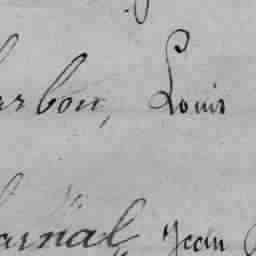 arbon, Louis
arnal, Jean